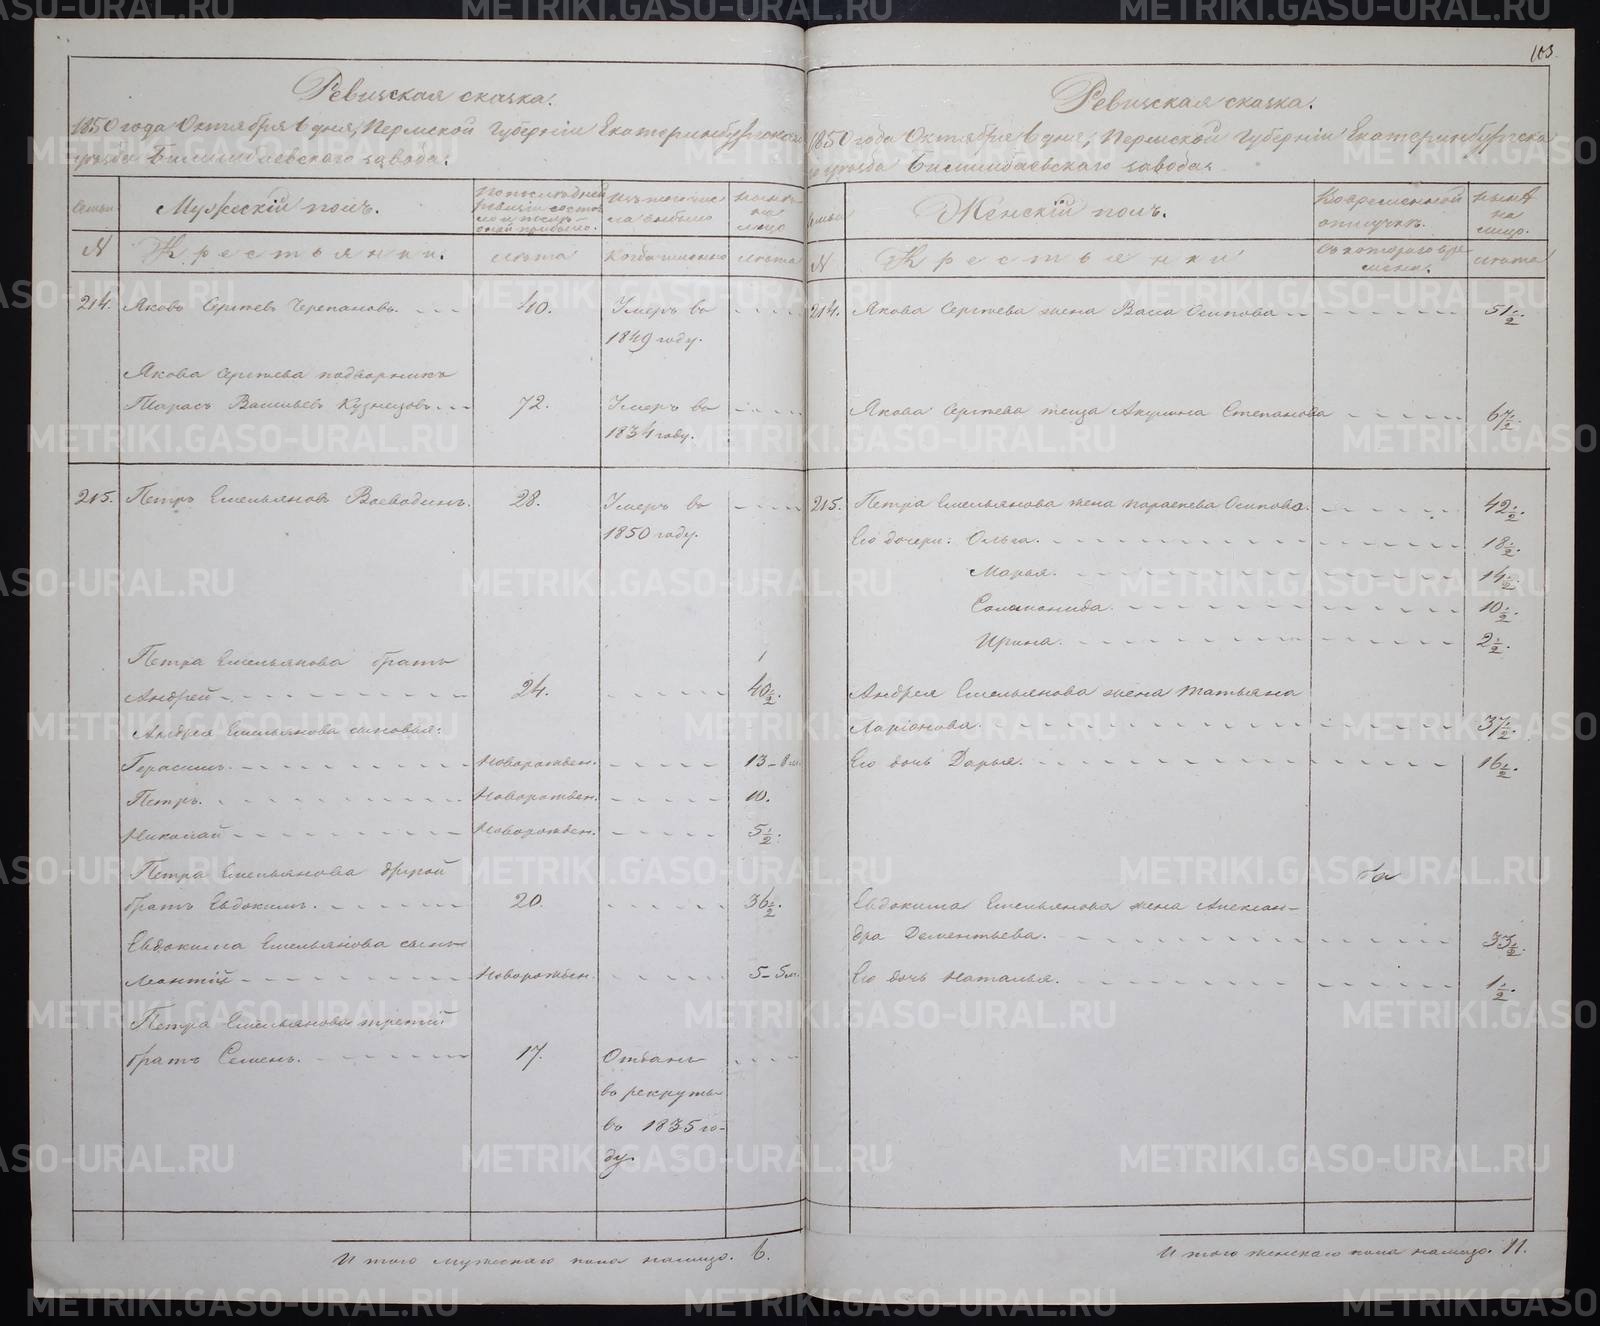 103.
Ревижская сказка.
1850 года Октября 6 дня, Пермской Губернiи Екатеринбургскаго
уезда Билимбаевскаго завода.
Мужескiй полъ.
№ Крестьяне. лета Когда именно лета
214. Яковъ Сергеевъ Черепановъ. 40. Умеръ въ
1849 году.
Якова Сергеева подворникъ
Тарасъ Васильевъ Кузнецовъ. 72. Умеръ въ
1834 году.
215. Петръ Емельяновъ Воеводинъ. 28. Умеръ въ
1850 году.
Петра Емельянова братъ
Андрей 24. 40 1/2.
Андрея Емельянова сыновья:
Герасимъ. Новорожден. 13 - 8 м.
Петръ. Новорожден. 10.
Николай Новорожден. 5 1/2.
Петра Емельянова другой
братъ Евдокимъ. 20. 36 1/2.
Евдокима Емельянова сынъ
Леонтiй Новорожден. 5 - 5 м.
Петра Емельянова третiй
братъ Семенъ. 17. Отданъ
въ рекруты
въ 1835 го-
ду.
Итого мужескаго пола налицо. 6.
Ревижская сказка.
1850 года Октября 6 дня, Пермской Губернiи Екатеринбургска
го уезда Билимбаевскаго завода.
Женскiй полъ. Во временной
отлучке. ныне
на
лицо.
№ Крестьянки Съ котораго вре
мени. лета
214. Якова Сергеева жена Васа Осипова 51 1/2.
Якова Сергеева теща Акулина Степанова 67 1/2.
215. Петра Емельянова жена Парасковья Осипова. 42 1/2.
Его дочери: Ольга. 18 1/2.
Марья. 14 1/2.
Соломонида. 10 1/2.
Ирина. 2 1/2.
Андрея Емельянова жена Татьяна
Ларiонова. 37 1/2.
Его дочь Дарья. 16 1/2.
Евдокима Емельянова жена Алексан-
дра Дементьева. 33 1/2.
Его дочь Наталья. 1 1/2.
Итого женскаго пола налицо. 11.
METRIKI.GASO-URAL.RU